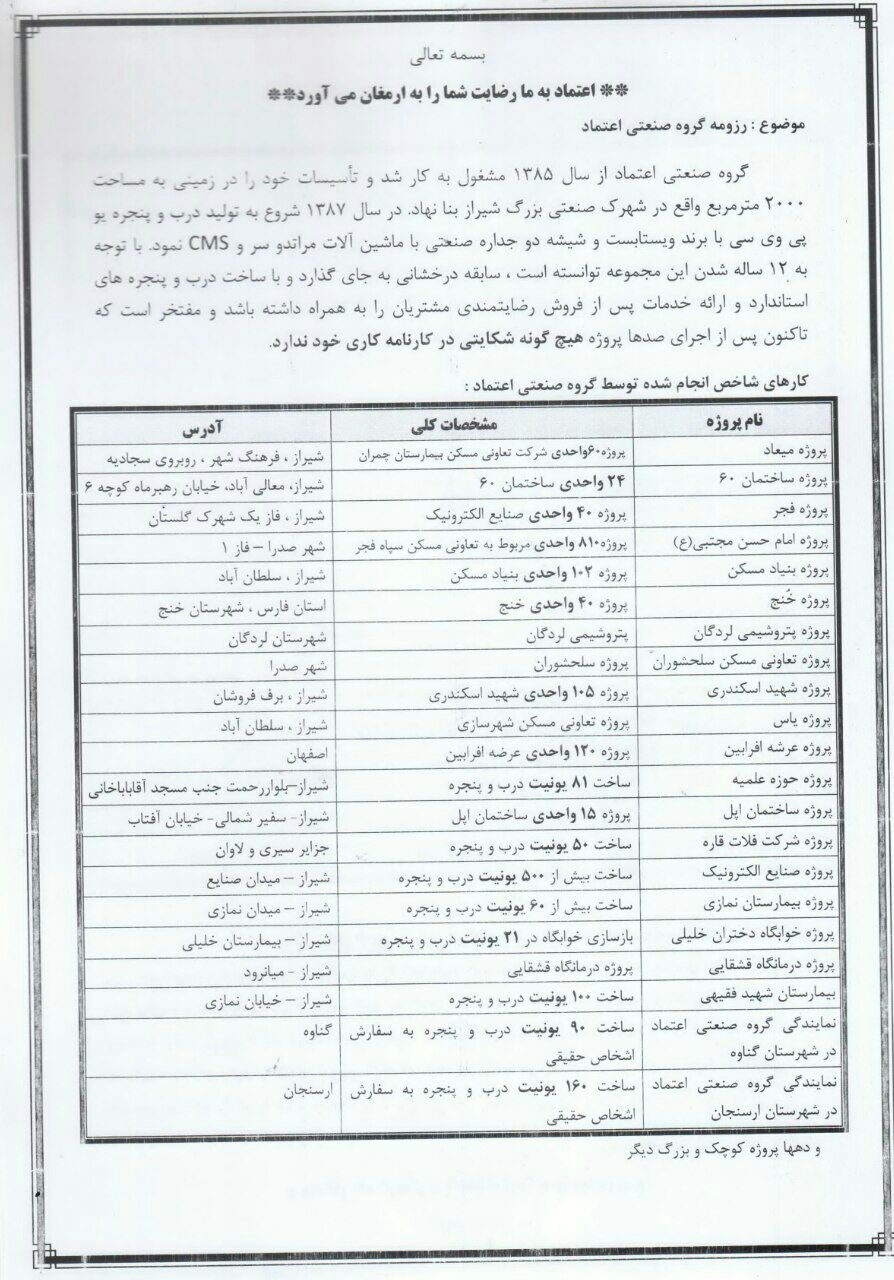 بسمه تعالی
** اعتماد به ما رضایت شما را به ارمغان می آورد**
موضوع : رزومه گروه صنعتی اعتماد
گروه صنعتی اعتماد از سال ۱۳۸۵ مشغول به کار شد و تأسیسات خود را در زمینی به مساحت
۲۰۰۰ مترمربع واقع در شهرک صنعتی بزرگ شیراز بنا نهاد. در سال ۱۳۸۷ شروع به تولید درب و پنجره یو
پی وی سی با برند ویستابست و شیشه دو جداره صنعتی با ماشین آلات مراتدو سر و CMS نمود. با توجه
به ۱۲ ساله شدن این مجموعه توانسته است ، سابقه درخشانی به جای گذارد و با ساخت درب و پنجره های
استاندارد و ارائه خدمات پس از فروش رضایتمندی مشتریان را به همراه داشته باشد و مفتخر است که
تاکنون پس از اجرای صدها پروژه هیچ گونه شکایتی در کارنامه کاری خود ندارد.
کارهای شاخص انجام شده توسط گروه صنعتی اعتماد :
نام پروژه مشخصات کلی آدرس
پروژه میعاد پروژه۶۰واحدی شرکت تعاونی مسکن بیمارستان چمران شیراز ، فرهنگ شهر ، روبروی سجادیه
پروژه ساختمان ۶۰ ۲۴ واحدی ساختمان ۶۰ شیراز، معالی آباد، خیابان رهبرماه کوچه ۶
پروژه فجر پروژه ۴۰ واحدی صنایع الکترونیک شیراز ، فاز یک شهرک گلستان
پروژه امام حسن مجتبی(ع) پروژه۸۱۰ واحدی مربوط به تعاونی مسکن سپاه فجر شهر صدرا – فاز ۱
پروژه بنیاد مسکن پروژه ۱۰۲ واحدی بنیاد مسکن شیراز ، سلطان آباد
پروژه خُنج پروژه ۴۰ واحدی خنج استان فارس ، شهرستان خنج
پروژه پتروشیمی لردگان پتروشیمی لردگان شهرستان لردگان
پروژه تعاونی مسکن سلحشوران پروژه سلحشوران شهر صدرا
پروژه شهید اسکندری پروژه ۱۰۵ واحدی شهید اسکندری شیراز ، برف فروشان
پروژه یاس پروژه تعاونی مسکن شهرسازی شیراز ، سلطان آباد
پروژه عرشه افرابین پروژه ۱۲۰ واحدی عرضه افرابین اصفهان
پروژه حوزه علمیه ساخت ۸۱ یونیت درب و پنجره شیراز–بلواررحمت جنب مسجد آقاباباخانی
پروژه ساختمان اپل پروژه ۱۵ واحدی ساختمان اپل شیراز- سفیر شمالی- خیابان آفتاب
پروژه شرکت فلات قاره ساخت ۵۰ یونیت درب و پنجره جزایر سیری و لاوان
پروژه صنایع الکترونیک ساخت بیش از ۵۰۰ یونیت درب و پنجره شیراز – میدان صنایع
پروژه بیمارستان نمازی ساخت بیش از ۶۰ یونیت درب و پنجره شیراز – میدان نمازی
پروژه خوابگاه دختران خلیلی بازسازی خوابگاه در ۲۱ یونیت درب و پنجره شیراز – بیمارستان خلیلی
پروژه درمانگاه قشقایی پروژه درمانگاه قشقایی شیراز - میانرود
بیمارستان شهید فقیهی ساخت ۱۰۰ یونیت درب و پنجره شیراز – خیابان نمازی
نمایندگی گروه صنعتی اعتماد ساخت ۹۰ یونیت درب و پنجره به سفارش گناوه
در شهرستان گناوه اشخاص حقیقی
نمایندگی گروه صنعتی اعتماد ساخت ۱۶۰ یونیت درب و پنجره به سفارش ارسنجان
در شهرستان ارسنجان اشخاص حقیقی
و دهها پروژه کوچک و بزرگ دیگر